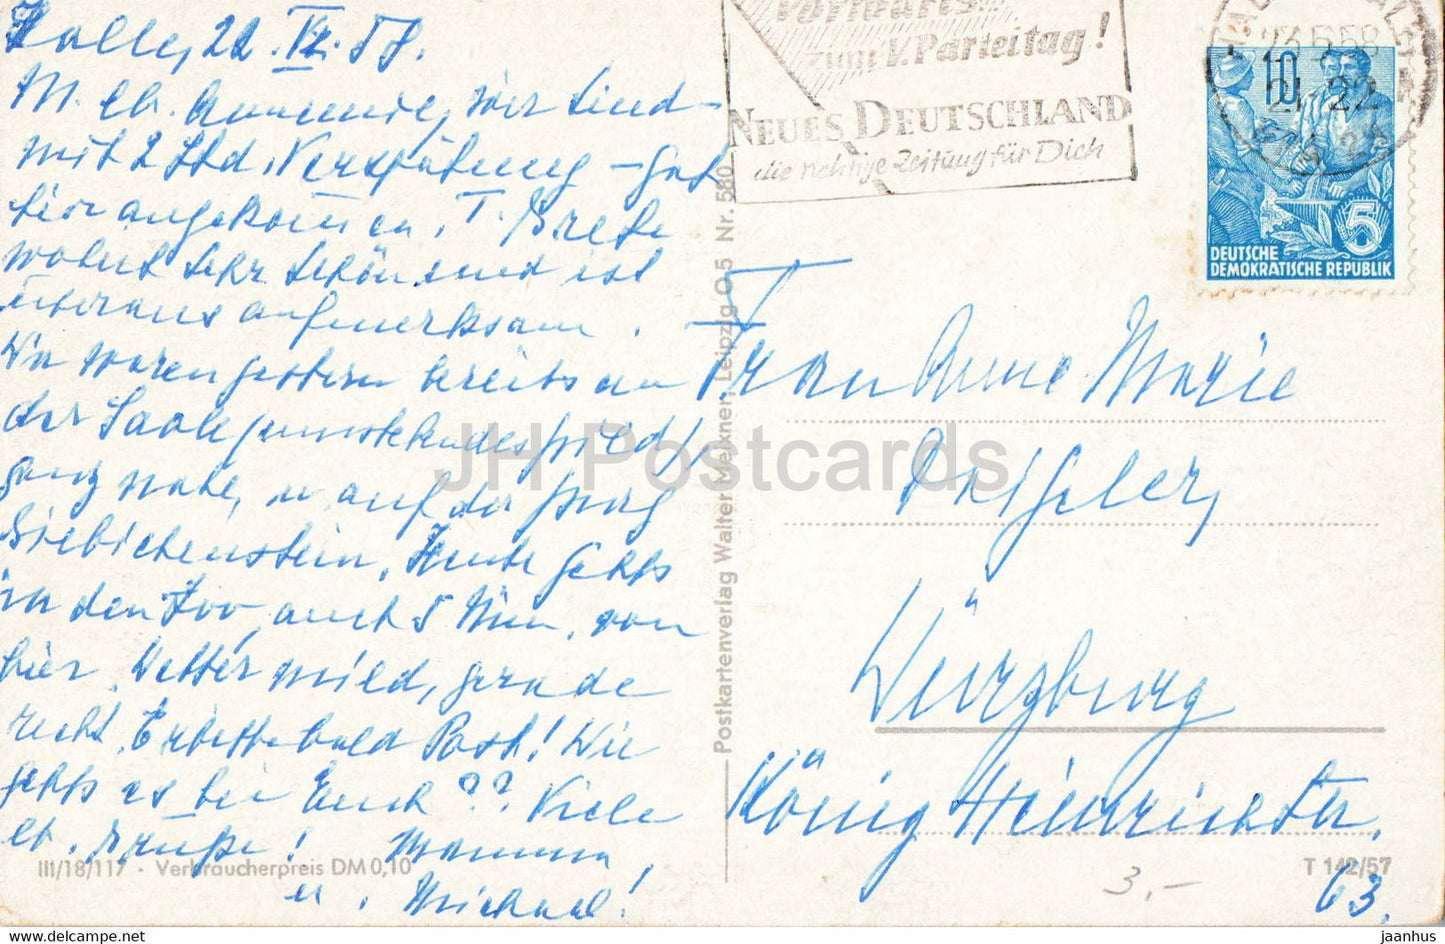 Halle, 22. VI. 58.
M. lb. Annemie, wir sind
mit 2 Std. Verspätung gut
hier angekommen. T. Grete
wohnt sehr schön und ist
überaus aufmerksam.
Wir waren gestern bereits an
der Saale
ganz nahe, u. auf der Burg
Giebichenstein. Heute gehts
in den Zoo, auch 5 Min. von
hier. Wetter mild, gerade
recht. Erbitte bald Post! Wie
gehts es bei Euch?? Viele
lb. Grüße! Mamma
u. Michael!
Vorwärts
zum V. Parteitag!
NEUES DEUTSCHLAND
die richtige Zeitung für Dich
22
10
5
DEUTSCHE
DEMOKRATISCHE REPUBLIK
Frau Anne Marie
Würzburg
König Heinrichstr.
63.
3,-
Postkartenverlag Walter Meixner, Leipzig O 5 Nr. 580
III/18/117 · Verbraucherpreis DM 0,10
T 142/57
JH Postcards
www.delcampe.net
jaanhus